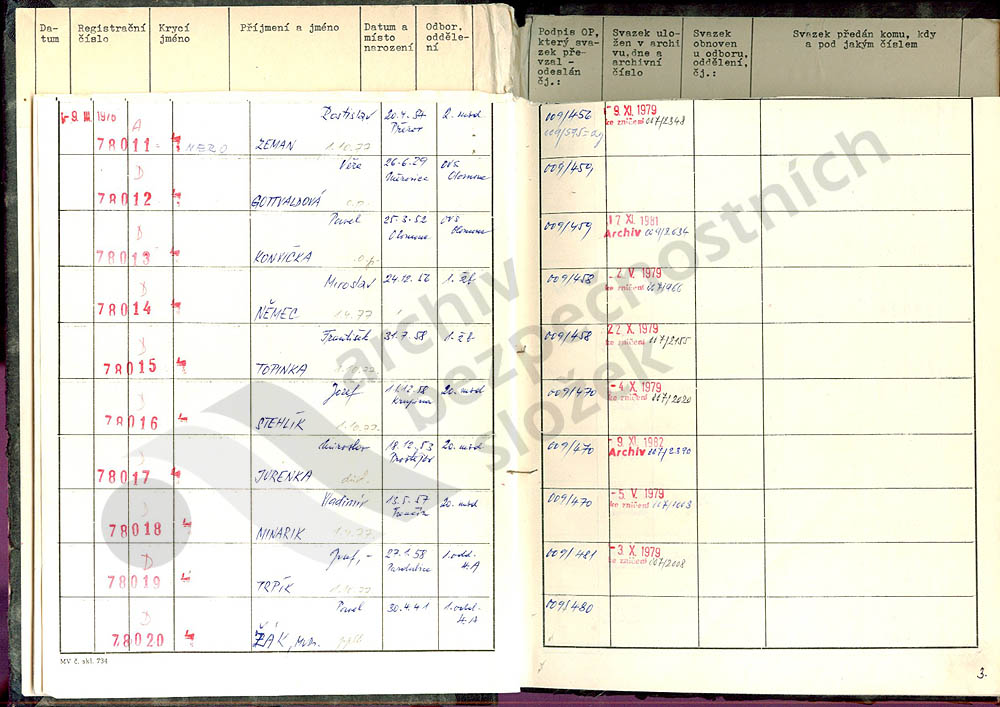 Da-
tum
Registrační
číslo
Krycí
jméno
Příjmení a jméno
Datum a
místo
narození
Odbor.
odděle-
ní
Podpis OP,
který sva-
zek pře-
vzal -
odeslán
čj.:
Svazek ulo-
žen v archi
vu,dne a
archivní
číslo
Svazek
obnoven
u odboru,
oddělení,
čj.:
Svazek předán komu, kdy
a pod jakým číslem
- 9. III. 1976
A
78011
NERO
Rostislav
ZEMAN
1.10.77
20.4.54
Přerov
2. odd
009/456
- 9 XI. 1979
ke zničení 007/2348
D
78012
Věra
GOTTVALDOVÁ
26.6.29
OVS
Olomouc
009/459
D
78013
Pavel
KONVIČKA
o.p.
25.3.52
Olomouc
OVS
Olomouc
009/459
17 XI. 1981
Archiv 009/2634
D
78014
Miroslav
NĚMEC
1.4.77
24.12.56
009/458
- 2. V. 1979
ke zničení 007/966
D
78015
František
TOPINKA
1.10.77
31.7.58
009/458
22 X. 1979
ke zničení 007/2155
D
78016
Josef
STEHLÍK
1.10.77
11.12.58
Krupina
009/470
- 4 X. 1979
ke zničení 007/2020
78017
JURENKA
18.12.53
Prostějov
009/470
- 9. XI. 1982
Archiv 007/2390
D
78018
Vladimír
MINARIK
1.4.77
13.5.57
009/470
- 5. V. 1979
ke zničení 007/1003
D
78019
Josef, -
TRPÍK
1.10.77
27.1.58
Pardubice
1.odd.
H.A
009/481
- 3. X. 1979
ke zničení 007/2008
D
78020
Pavel
ŽÁK, MUDr.
30.4.41
1.odd.
009/480
MV č. skl. 734
3.
archiv
bezpečnostních
složek